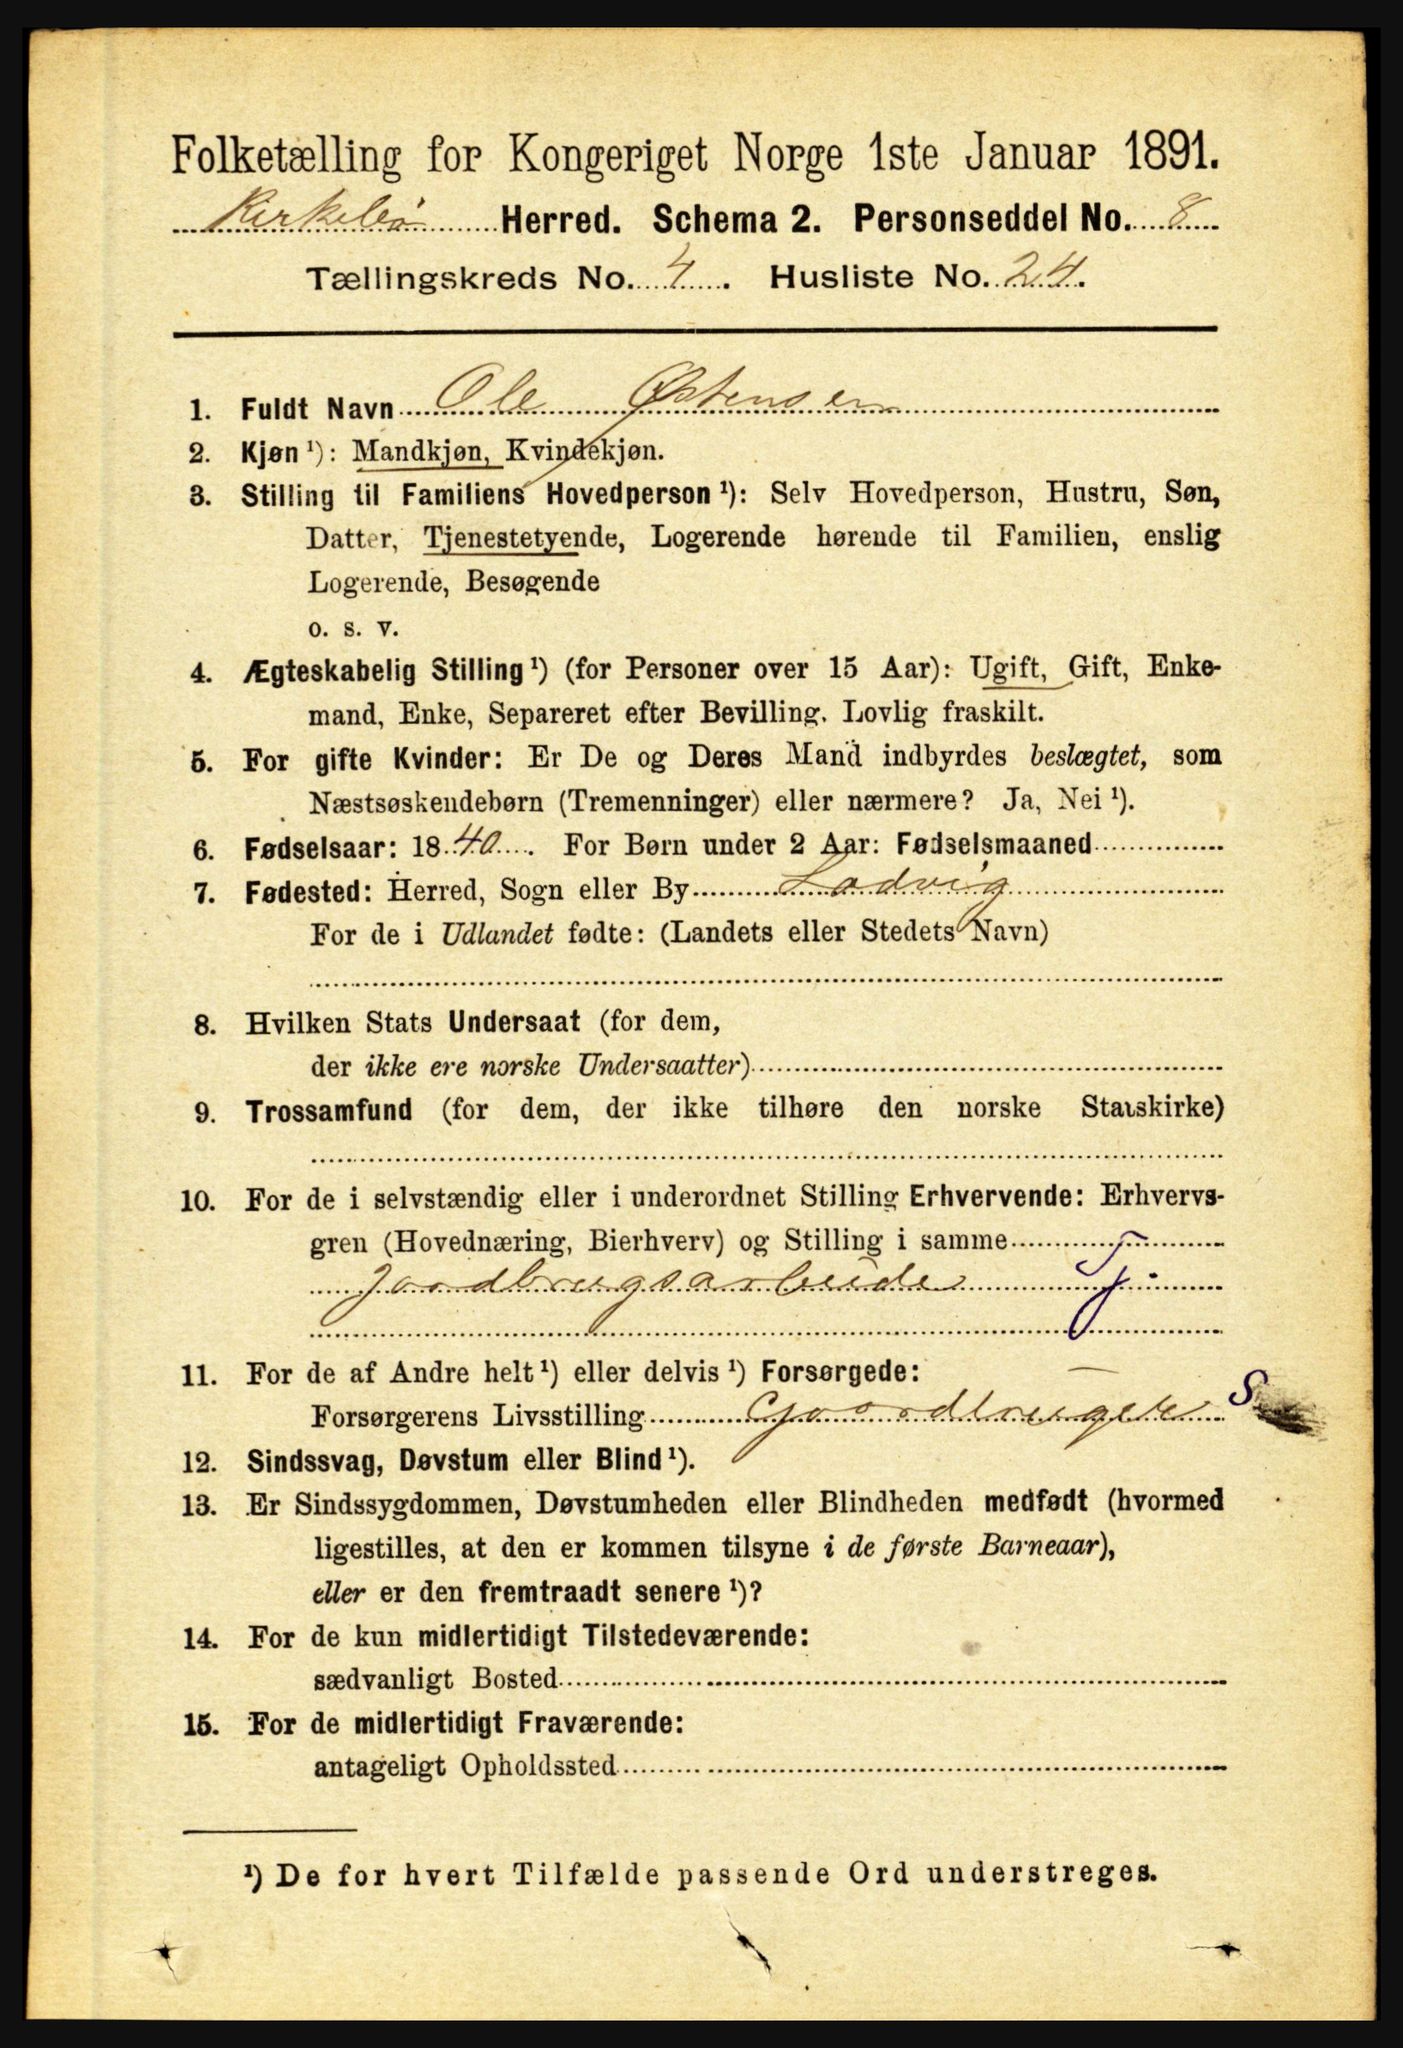 Folketælling for Kongeriget Norge 1ste Januar 1891.
Kirkebø Herred. Schema 2. Personseddel No. 8
Tællingskreds No. 4. Husliste No. 24.
1. Fuldt Navn Ole Østensen
2. Kjøn ¹): Mandkjøn, Kvindekjøn.
3. Stilling til Familiens Hovedperson ¹): Selv Hovedperson, Hustru, Søn,
Datter, Tjenestetyende, Logerende hørende til Familien, enslig
Logerende, Besøgende
o. s. v.
4. Ægteskabelig Stilling ¹) (for Personer over 15 Aar): Ugift, Gift, Enke-
mand, Enke, Separeret efter Bevilling. Lovlig fraskilt.
5. For gifte Kvinder: Er De og Deres Mand indbyrdes beslægtet, som
Næstsøskendebørn (Tremenninger) eller nærmere? Ja, Nei ¹).
6. Fødselsaar: 1840. For Børn under 2 Aar: Fødselsmaaned
7. Fødested: Herred, Sogn eller By Ladvig
For de i Udlandet fødte: (Landets eller Stedets Navn)
8. Hvilken Stats Undersaat (for dem,
der ikke ere norske Undersaatter)
9. Trossamfund (for dem, der ikke tilhøre den norske Statskirke)
10. For de i selvstændig eller i underordnet Stilling Erhvervende: Erhvervs-
gren (Hovednæring, Bierhverv) og Stilling i samme
Jordbrugsarbeide T.
11. For de af Andre helt ¹) eller delvis ¹) Forsørgede:
Forsørgerens Livsstilling Gaardbruger S
12. Sindssvag, Døvstum eller Blind ¹).
13. Er Sindssygdommen, Døvstumheden eller Blindheden medfødt (hvormed
ligestilles, at den er kommen tilsyne i de første Barneaar),
eller er den fremtraadt senere ¹)?
14. For de kun midlertidigt Tilstedeværende:
sædvanligt Bosted
15. For de midlertidigt Fraværende:
antageligt Opholdssted
¹) De for hvert Tilfælde passende Ord understreges.